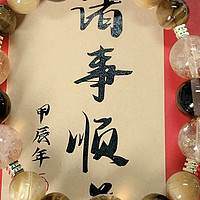 诸事顺
甲辰年